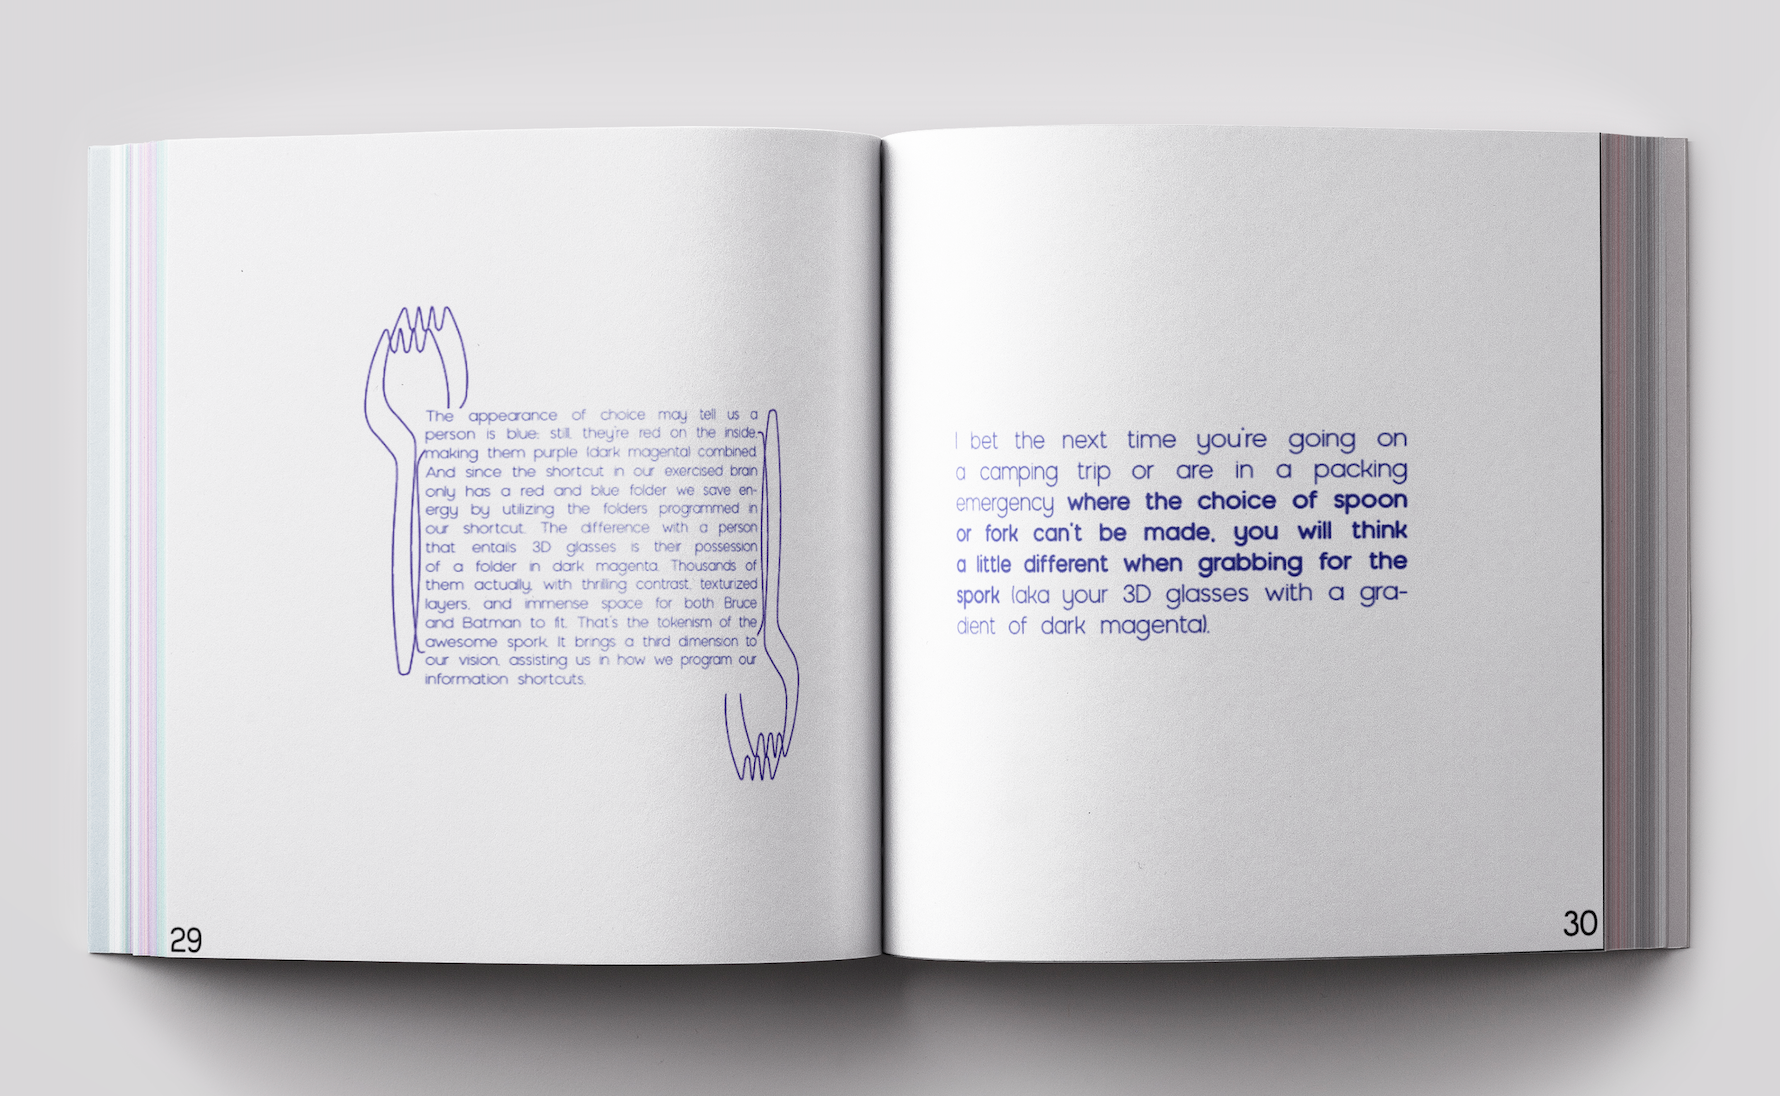 The appearance of choice may tell us a
person is blue; still, they're red on the inside,
making them purple (dark magenta) combined.
And since the shortcut in our exercised brain
only has a red and blue folder we save en-
ergy by utilizing the folders programmed in
our shortcut. The difference with a person
that entails 3D glasses is their possession
of a folder in dark magenta. Thousands of
them actually, with thrilling contrast, texturized
layers, and immense space for both Bruce
and Batman to fit. That's the tokenism of the
awesome spork. It brings a third dimension to
our vision, assisting us in how we program our
information shortcuts.
29
I bet the next time you're going on
a camping trip or are in a packing
emergency where the choice of spoon
or fork can't be made, you will think
a little different when grabbing for the
spork (aka your 3D glasses with a gra-
dient of dark magenta).
30